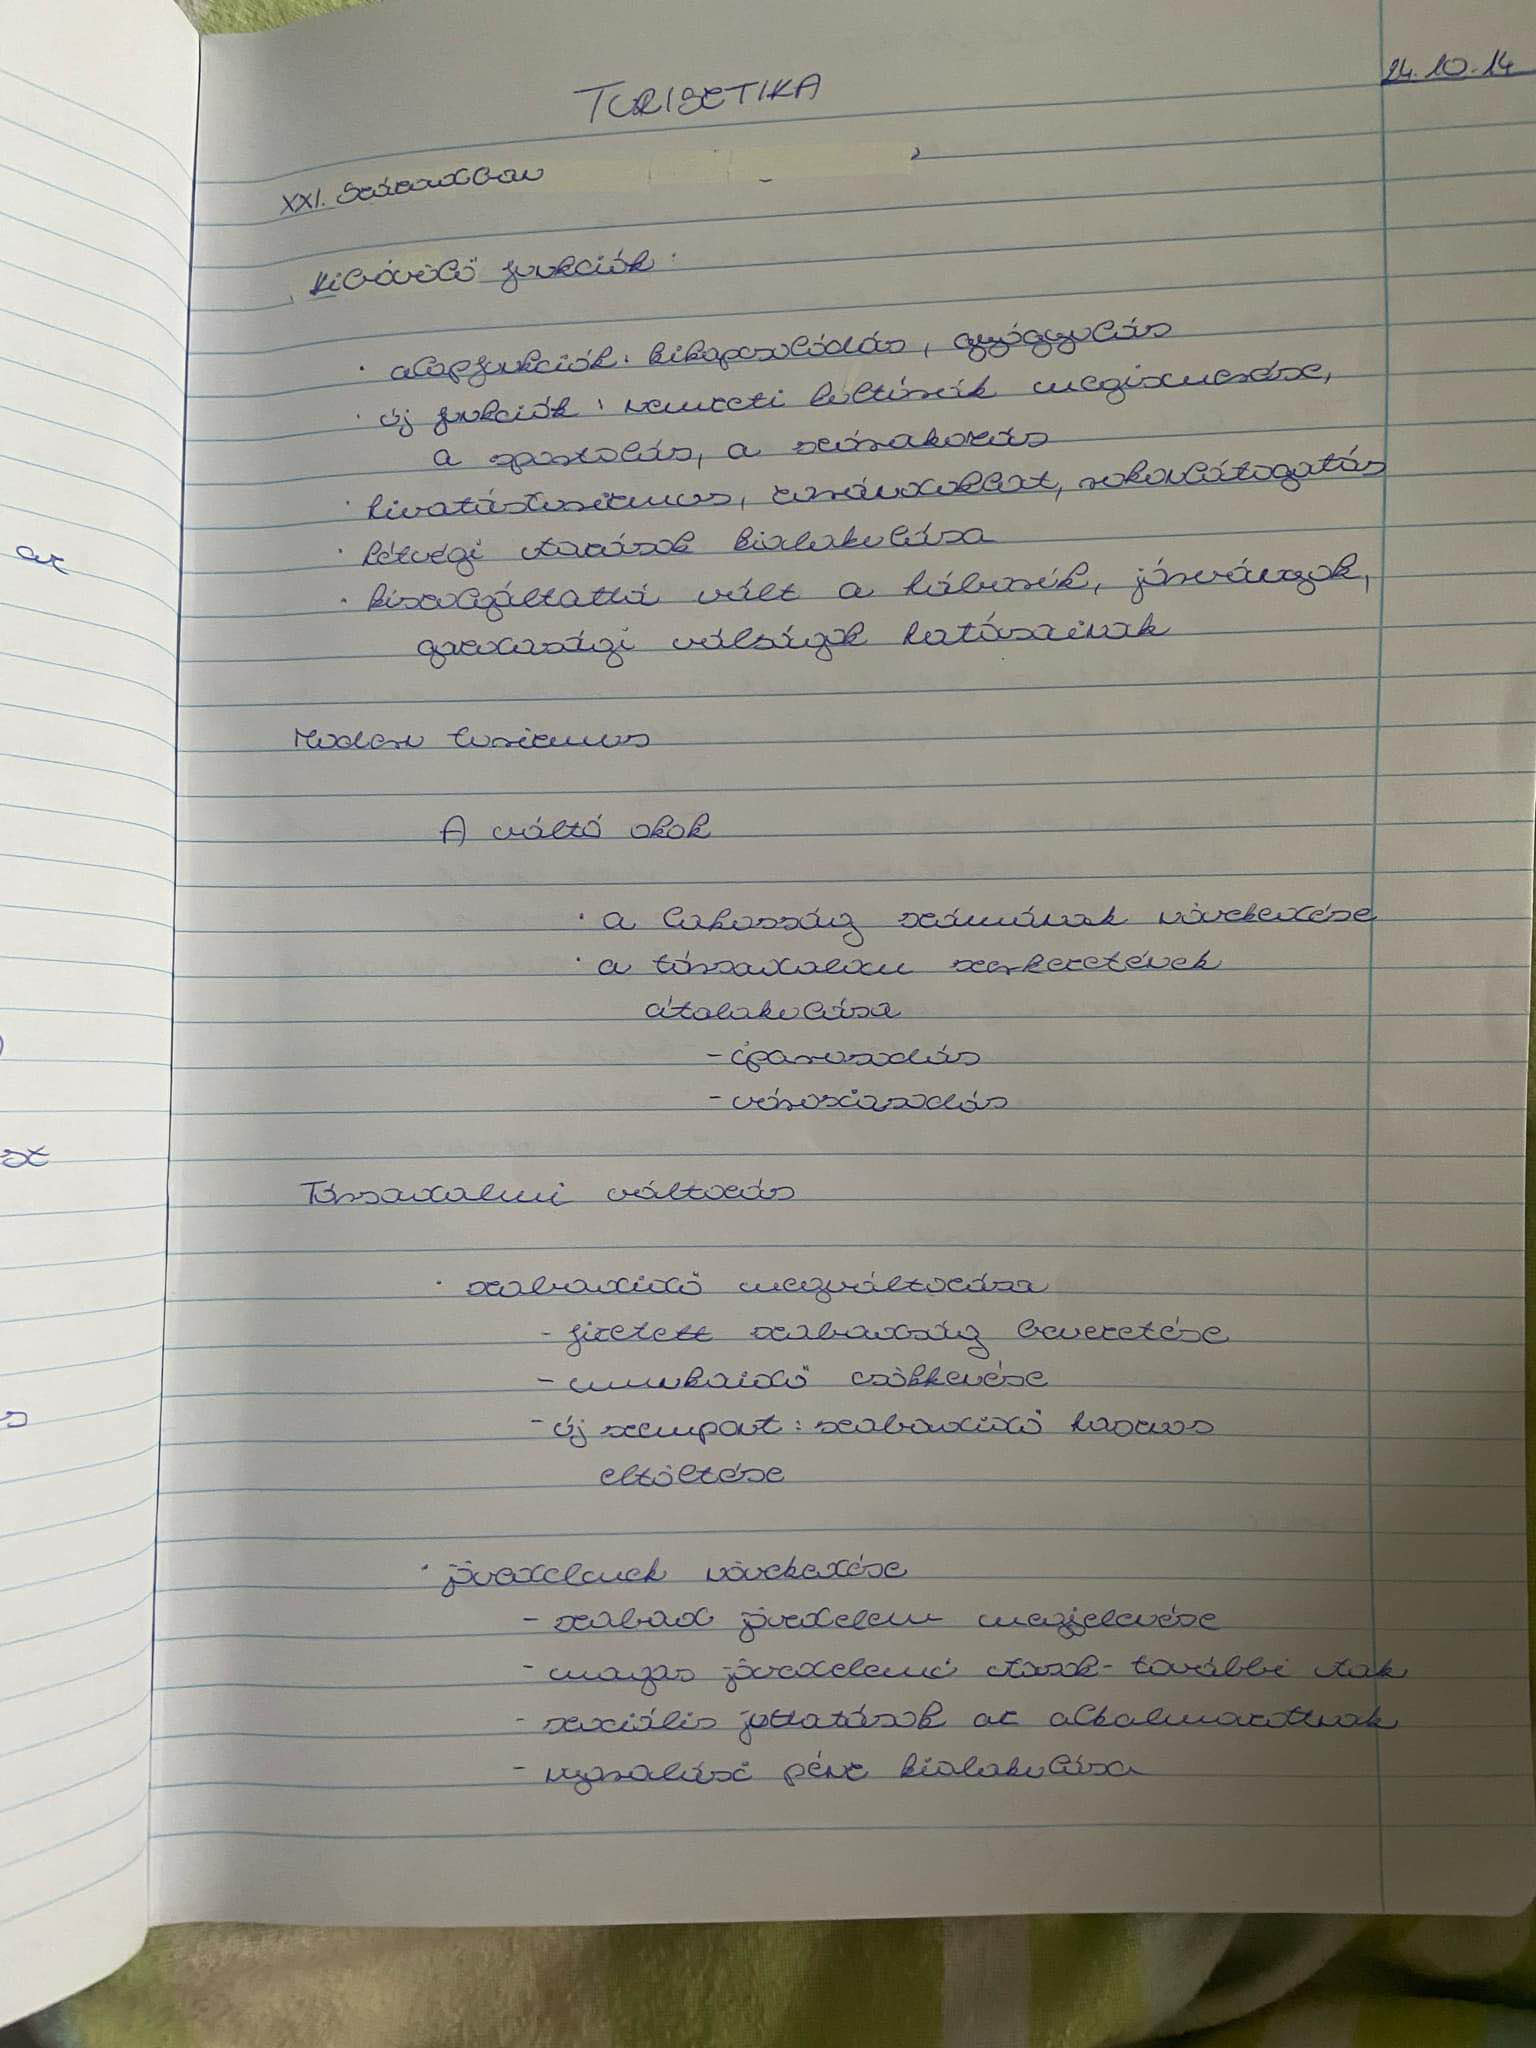 24.10.14
TURISZTIKA
XXI. Században
Kibővülő funkciók:
· alapfunkciók: kikapcsolódás, gyógyulás
· új funkciók: nemzeti kultúrák megismerése,
a sportolás, a szórakozás
· hivatásturizmus, zarándoklat, rokonlátogatás
· hétvégi utazások kialakulása
· kiszolgáltattá vált a háborúk, járványok,
gazdasági válságok hatásainak
Modern turizmus
A váltó okok
· a lakosság számának növekedése
· a társadalom szerkezetének
átalakulása
- iparosodás
- városiasodás
Társadalmi változás
· szabadidő megváltozása
- fizetett szabadság bevezetése
- munkaidő csökkenése
- új szempont: szabadidő hasznos
eltöltése
· jövedelmek növekedése
- szabad jövedelem megjelenése
- magas jövedelmű utasok - további utak
- szociális juttatások az alkalmazottnak
- nyaralási pénz kialakulása
az
szt
s